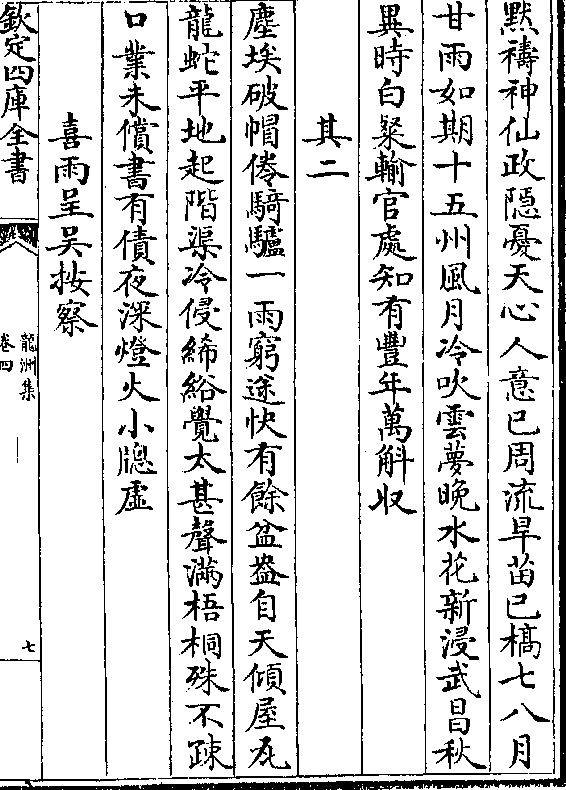 黙禱神仙政隠憂天心人意已周流旱苗已槁七八月
甘雨如期十五州風月冷吹雲夢晚水花新浸武昌秋
異時白粲輸官處知有豐年萬斛収
其二
塵埃破帽倦騎驢一雨窮途快有餘盆盎自天傾屋瓦
龍蛇平地起階渠冷侵絺綌覺太甚聲滿梧桐殊不踈
口業未償書有債夜深燈火小牕虚
喜雨呈吳按察
欽定四庫全書
龍洲集
卷四
七